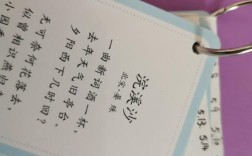 浣溪沙
北宋·晏殊
一曲新词酒一杯,
去年天气旧亭台。
夕阳西下几时回?
无可奈何花落去,
似曾相识燕归
小园香
5.13 5.14